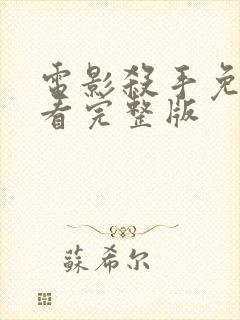 電影殺手免
看完整版
蘇希尔